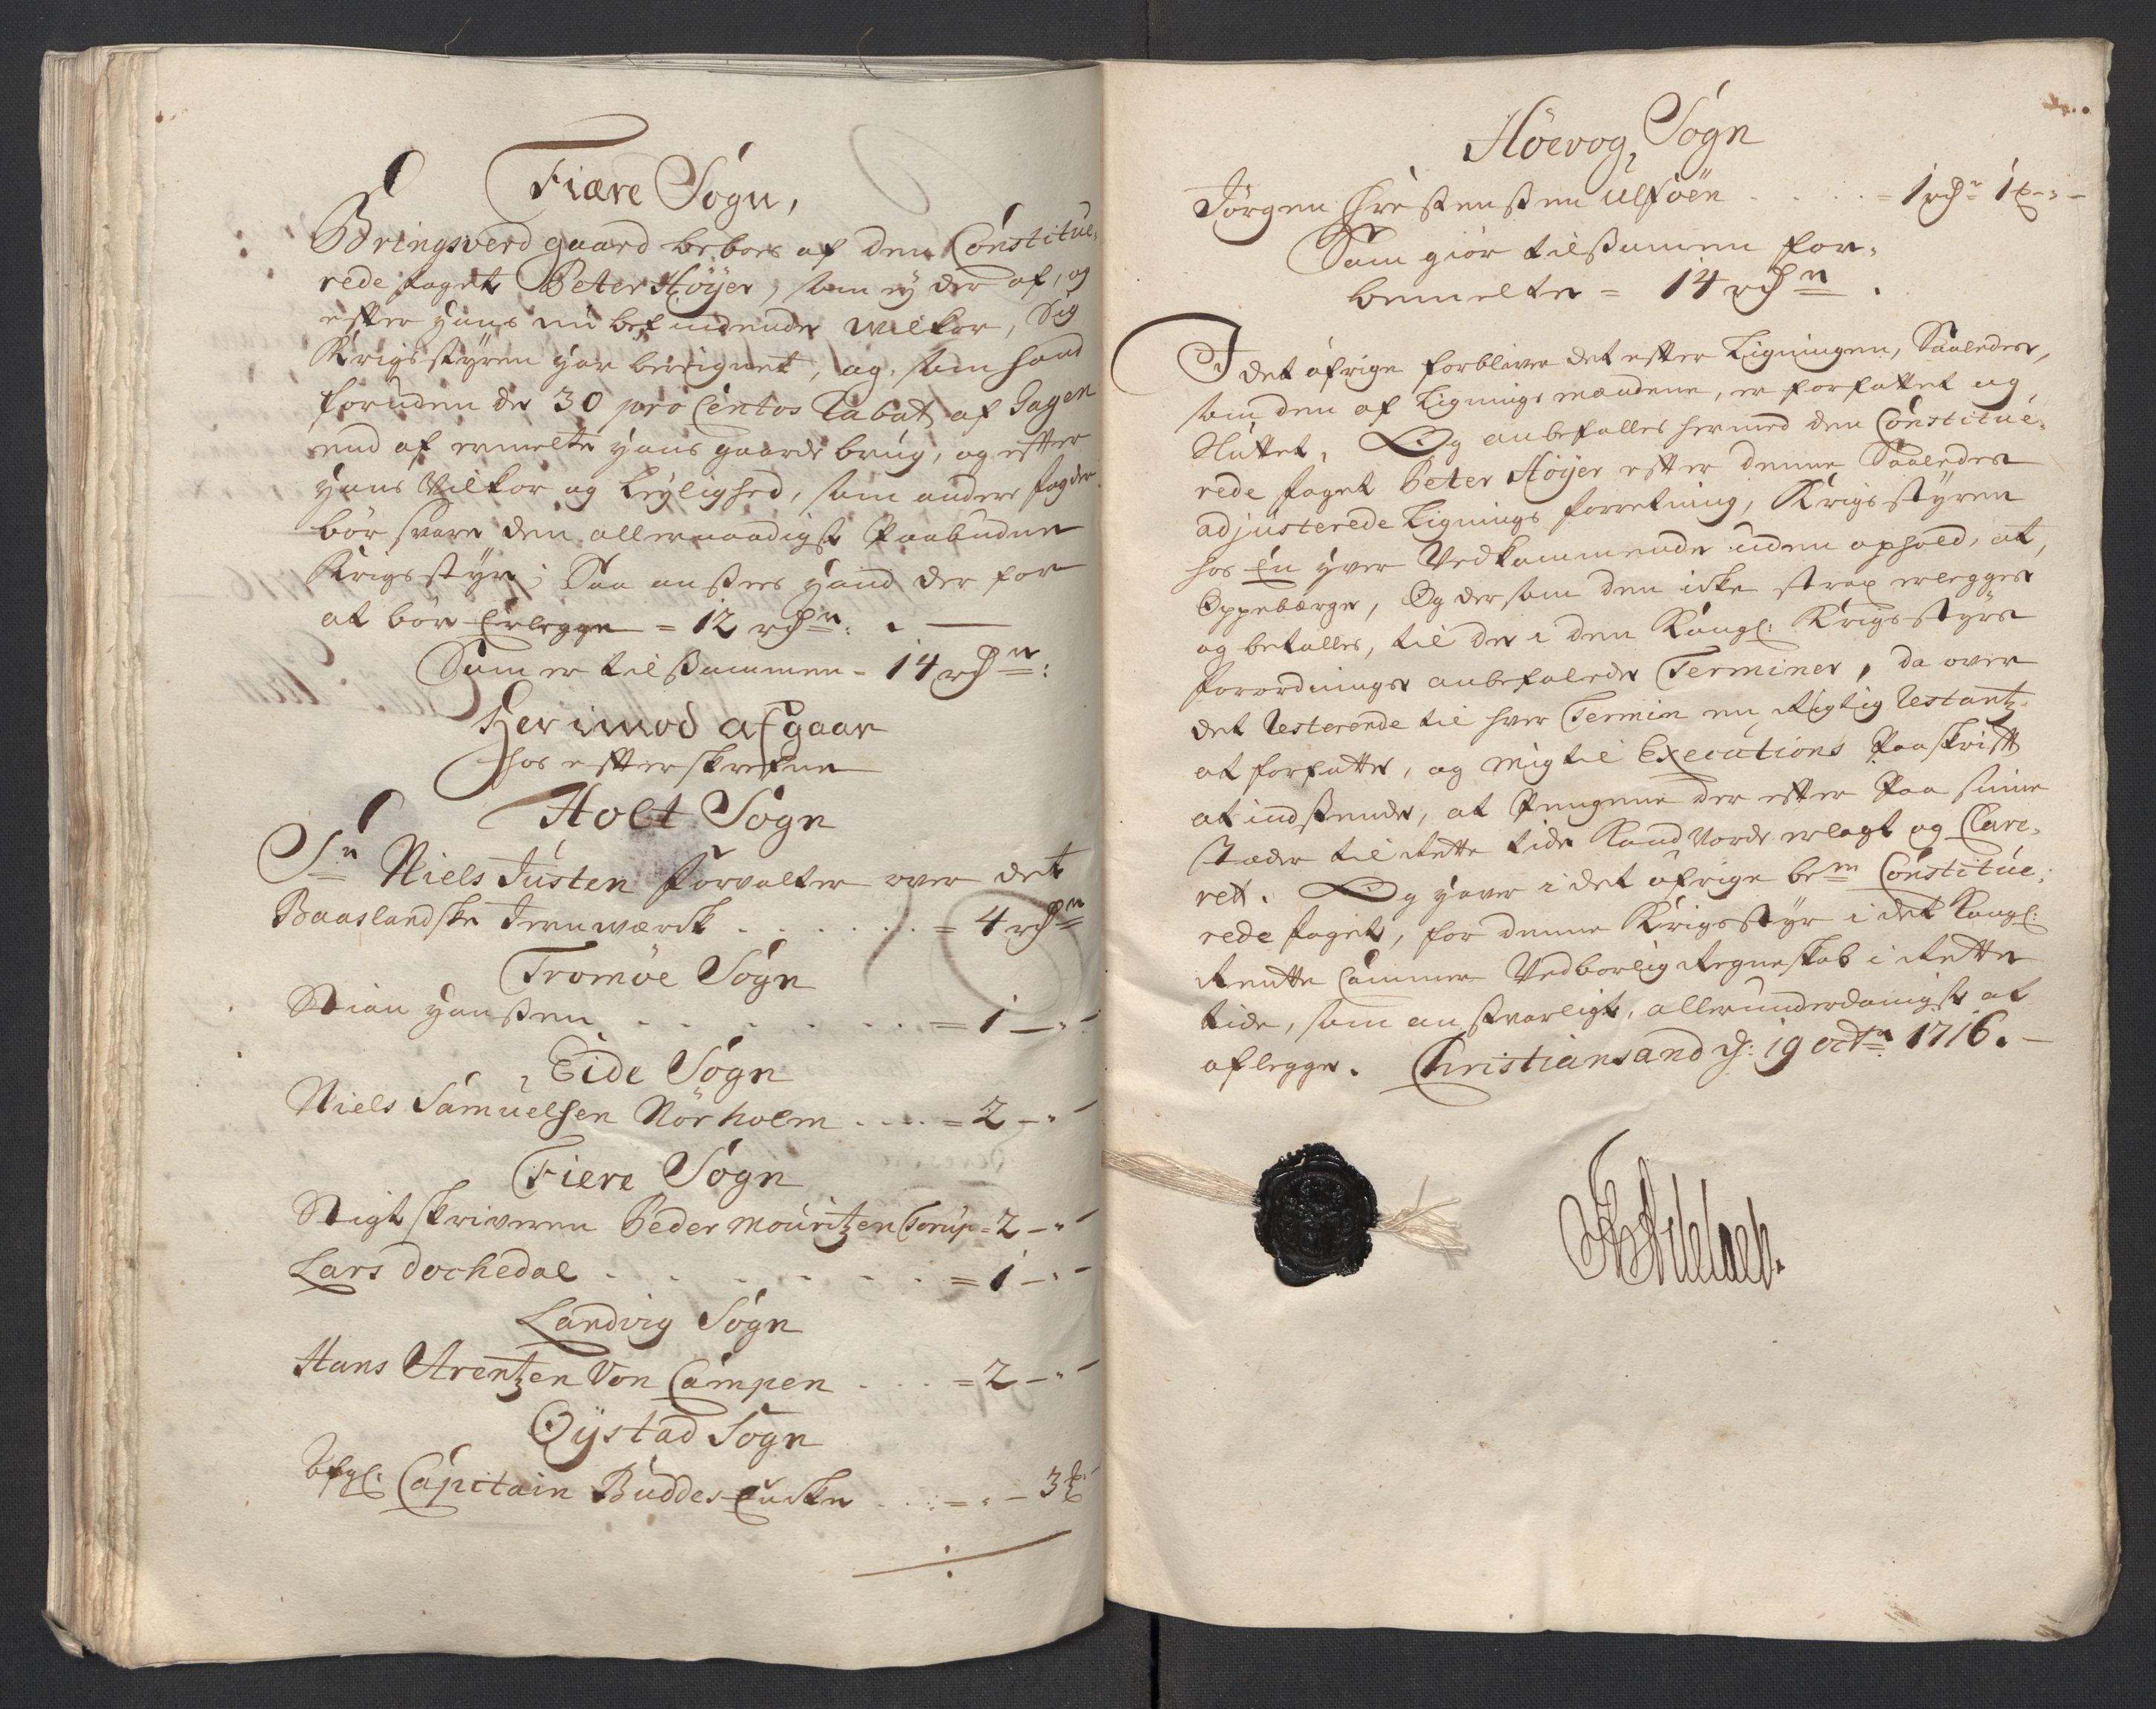 Fiære Sogn,
Bringsverd gaard beboes af den Constitue-
rede foget Peter Höÿer, som eÿ der af, og
efter hans nu befindende wilkor, Sig
Krigsstÿren har beregnet, og som hand
foruden de 30 pro Centos Rabat af Gagen
end af ermelte hans gaards brug, og efter
hans Vilkor og Leÿlighed, som andre fogder
bör svare den allernaadigst Paabudne
Krigsstÿr; Saa ansees hand der for
at bör Erlegge = 12 rdr:
Som er tilsammen - 14 rdr:
Her imod afgaar
hos efterskrefne
Holt Sogn
Sr Niels Justen forvalter over det
Baaslandske Jernwerck . . . . . = 4 rdr
Tromöe Sogn
Stian Hanssen . . . . . . . = 1 - " -
Eide Sogn
Niels Samuelsen Nörholm . . . . = 2 - " -
Fiere Sogn
Sorenskriveren Peder Mouritzen Torup = 2 - " -
Lars Dochedal . . . . . . . = 1 - " -
Landvig Sogn
Hans Arentzen Von Campen . . . = 2 - " -
Öÿstad Sogn
Capitain Buddes Encke . . . = " - 3
Höevog Sogn
Jörgen Christenssen Ulföen . . . . = 1 rdr 1 - " -
Som giör tilsammen for-
bemelte = 14 rdr.
I det öfrige forbliver det efter Ligningen, Saaledes,
som den af Ligningsmændene, er forfattet og
Sluttet, Og anbefalles hermed den Constitue-
rede foget Peter Höÿer efter denne Saaledes
adjusterede Lignings forretning, Krigsstÿren
hos En hver Vedkommende uden ophold, at,
Oppebærge, Og dersom den icke strax erlegges
og betalles, til de i den Kongl: Krigsstÿrs
forordnings anbefalede Terminer, da over
det Resterende til hver Termin en Rigtig Restantz
at forfatte, og mig til Executions Paaskrift
at indsende, at Pengene der efter Paa sinne
stæder til Rette tide Kand Vorde erlagt og Clare-
ret. Og haver i det öfrige bemte Constitue-
rede foget, for denne Krigsstÿr i det Kongl:
Rente Cammer Vedborlig Regneskab i Rette
tide, som answarligt, allerunderdanigst at
aflegge. Christiansand d: 19 octr: 1716. -